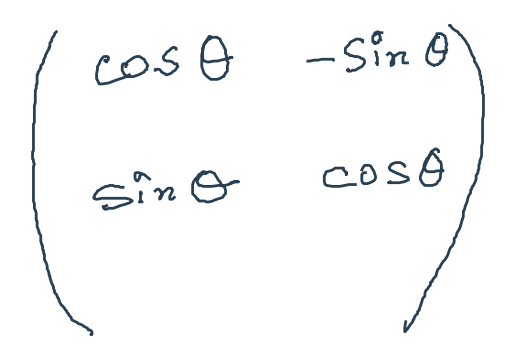 cos θ -sin θ
sin θ cos θ